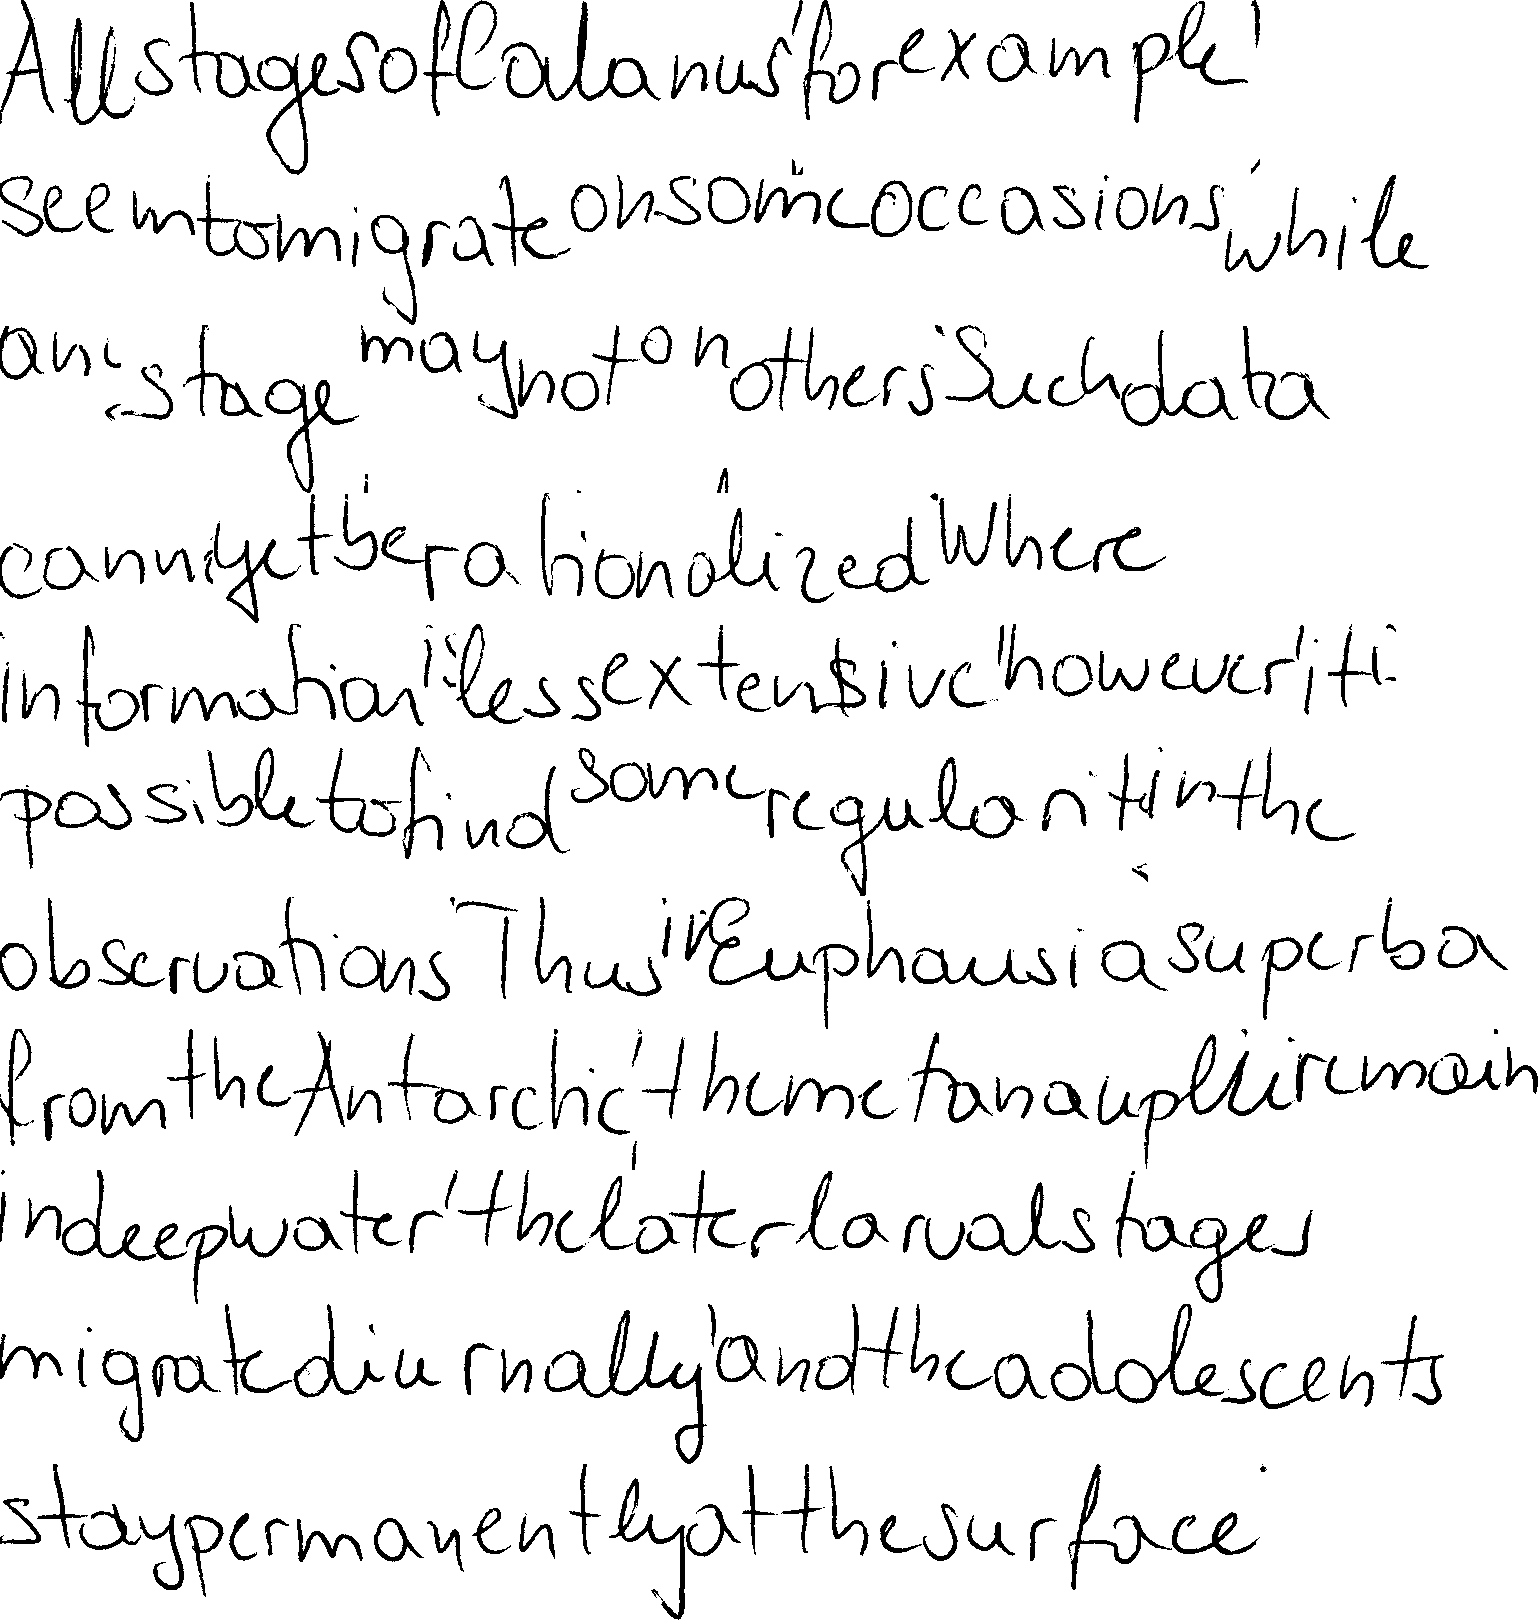 All stages of Calanus, for example,
seem to migrate on some occasions, while
any stage may not on others. Such data
cannot yet be rationalized. Where
information is less extensive, however, it is
possible to find some regularity in the
observations. Thus in Euphausia superba
from the Antarctic, the metanauplii remain
in deep water, the later larval stages
migrate diurnally, and the adolescents
stay permanently at the surface.